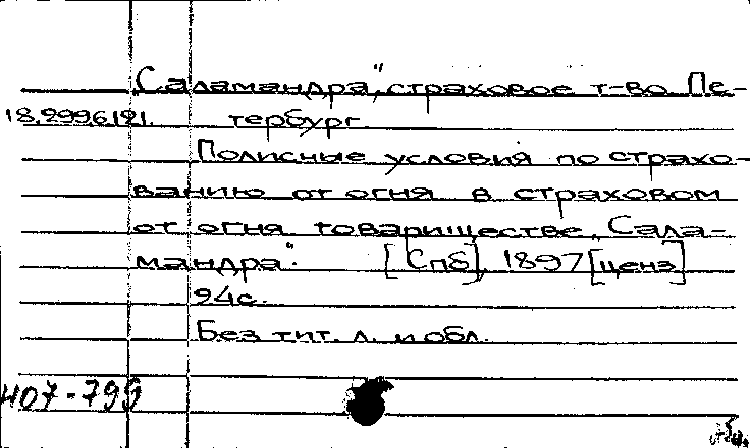 "Саламандра", страховое т-во. Пе-
18.299.6.121. тербург.
Полисные условия по страхо-
ванию от огня в страховом
от огня товариществе „Сала-
мандра". [Спб], 1897 [ценз]
94с.
Без тит. л. и обл.
Н07-799